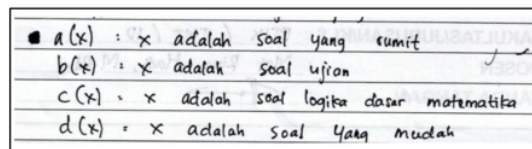 a(x) : x adalah soal yang rumit
b(x) : x adalah soal ujian
c(x) : x adalah soal logika dasar matematika
d(x) : x adalah soal yang mudah